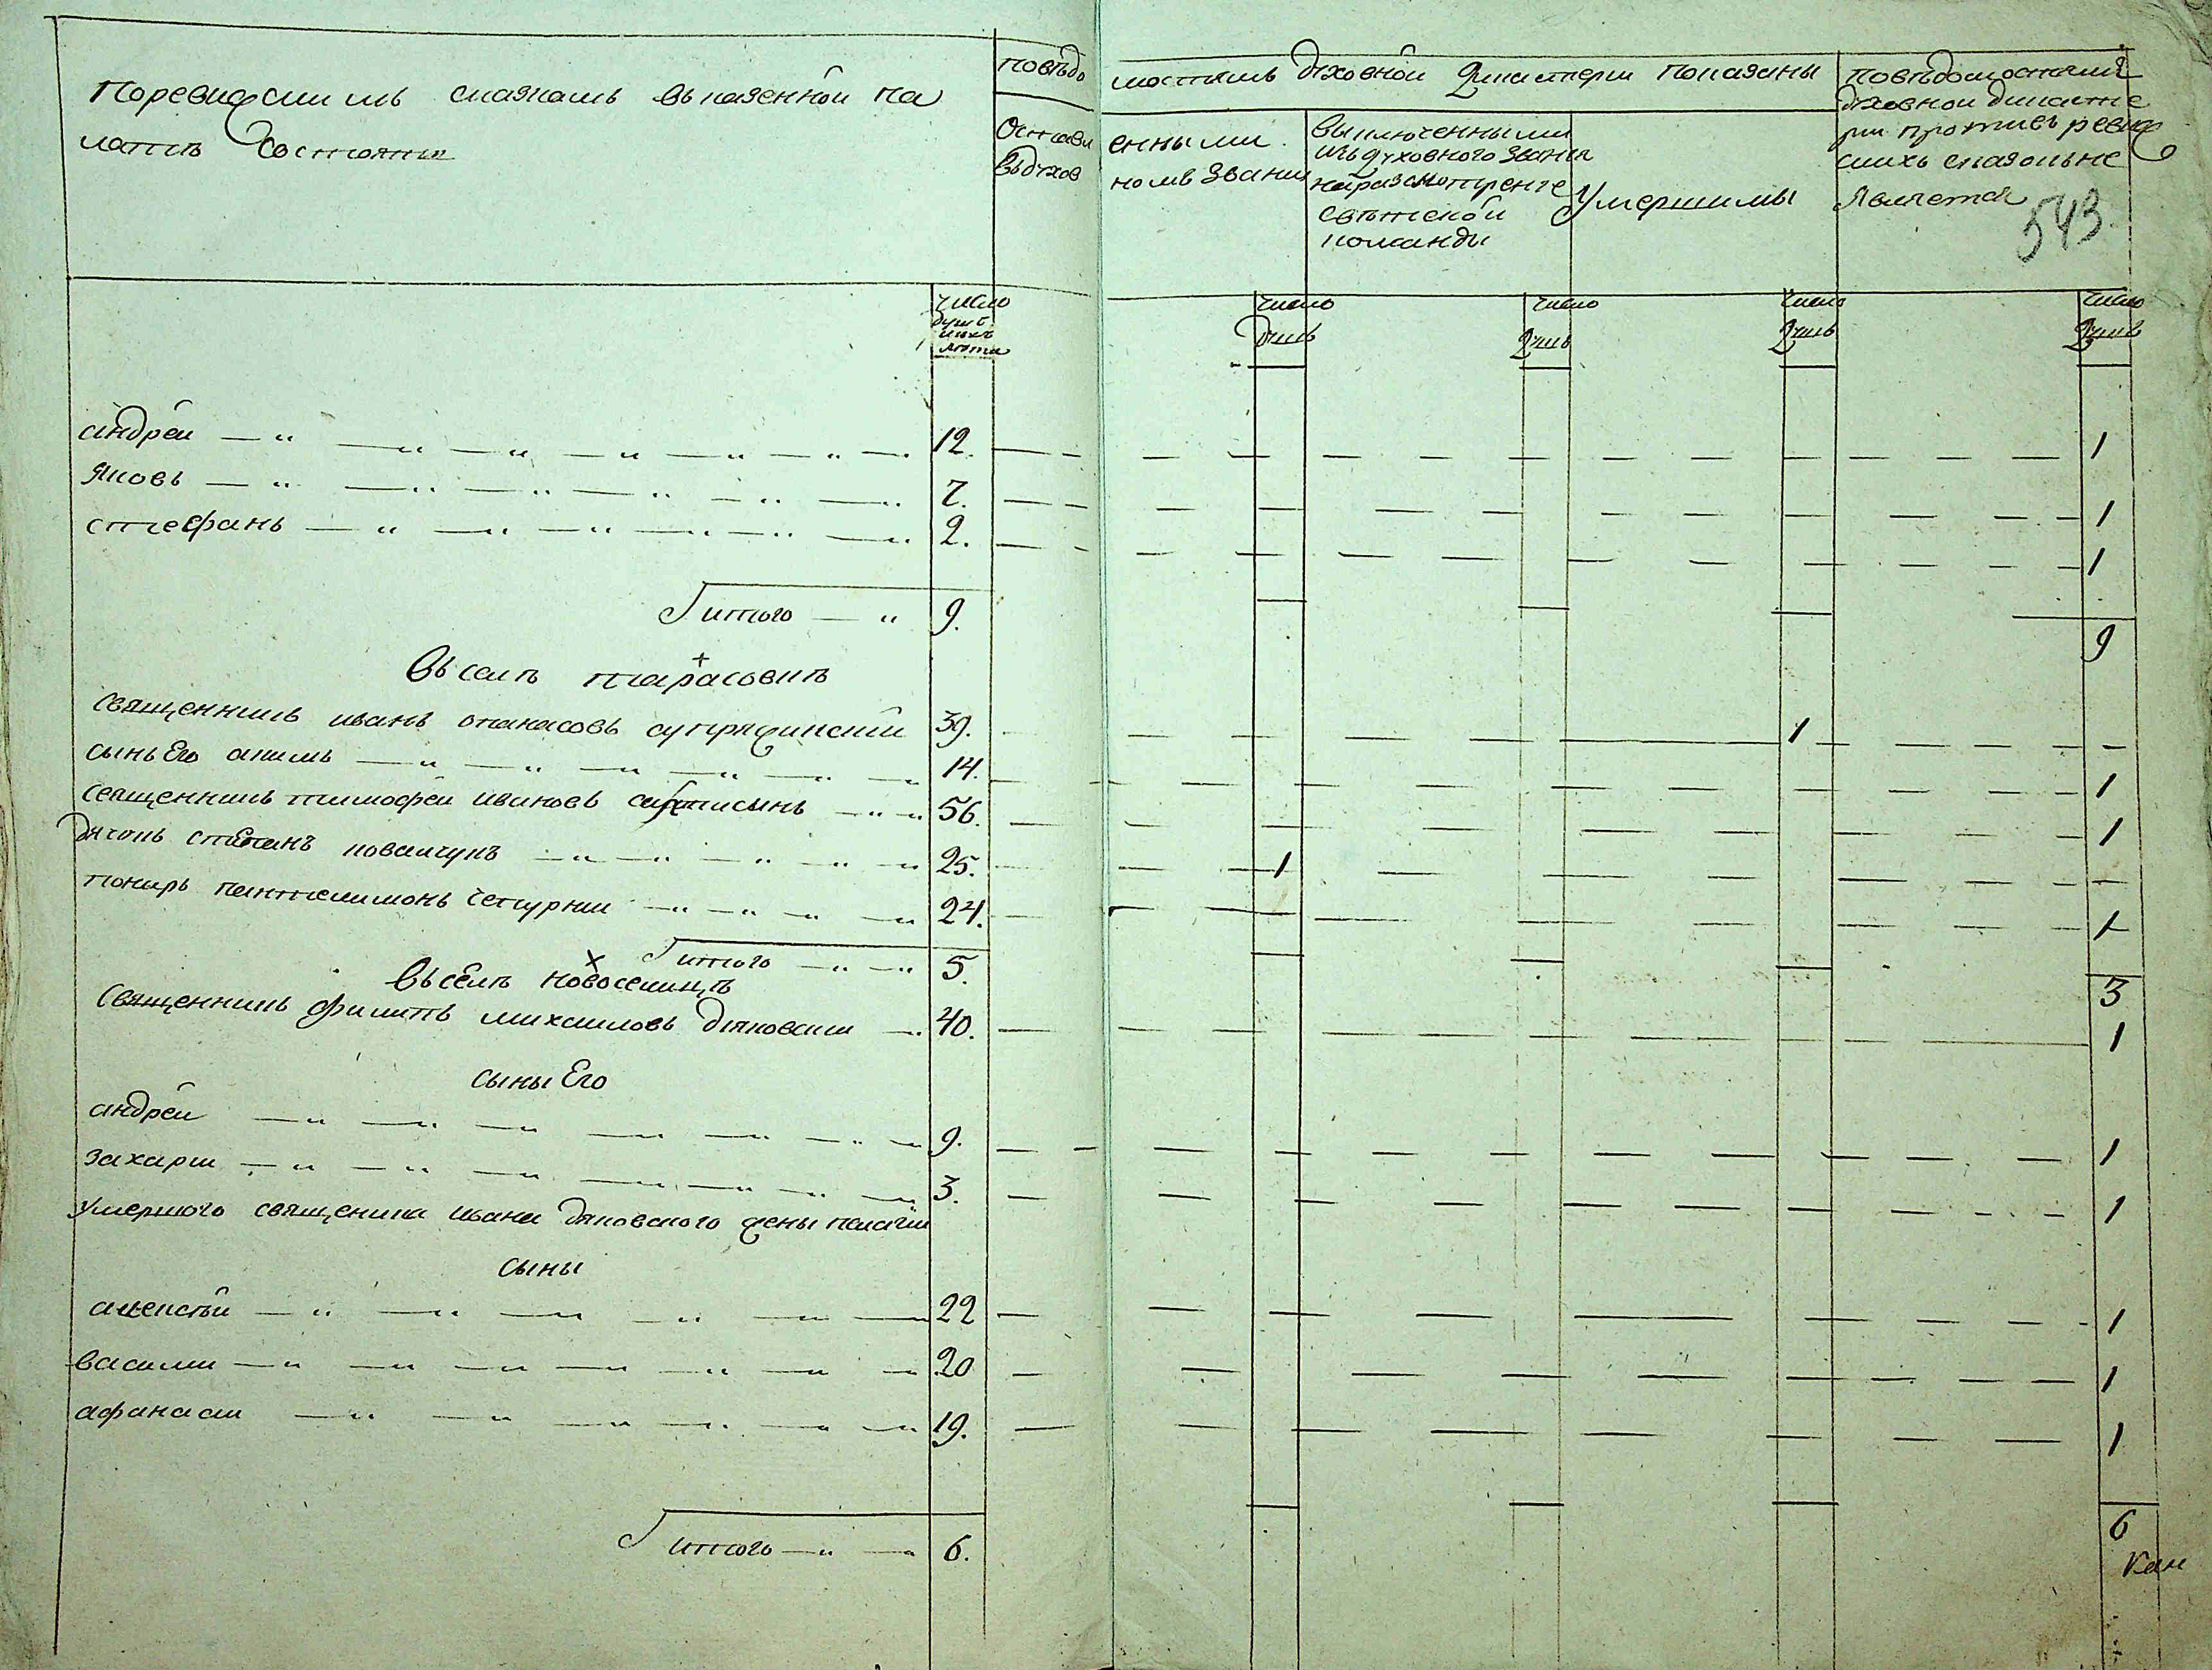 поревизскимъ сказкамъ вьказенной па
латѣ состояни
повѣдо мостямъ духовной дикастерии показаны
оставл енными
въдухов номъ звании
выключенными
изъ духовного звания
наразсмотрение
свѣтской
команды
умершимы
повѣдомостямъ
духовной дикасте
рии противъ ревиз
скихъ сказокъ не
является
543
число
душъ
ихъ
лѣта
число
душъ
число
душъ
число
душъ
число
душъ
андрей 12. 1
яковъ 7. 1
стефанъ 2. 1
итого 9. 9
въ селѣ тарасовкѣ
священникъ иванъ опанасовъ 39. 1
сынъ его акимъ 14. 1
священникъ тимофеи ивановъ 56. 1
дячокъ степанъ ковалчукъ 25. 1
понмарь пантелимонъ 24. 1
итого 5. 3
въ селѣ новоселицѣ
священникъ филипъ михаиловъ дяковски 40. 1
сыны его
андрей 9. 1
захарии 3. 1
умершого священика ивана дяковского жены пелагии
сыны
алексѣй 22 1
василии 20 1
афанасии 19. 1
итого 6. 6
кан